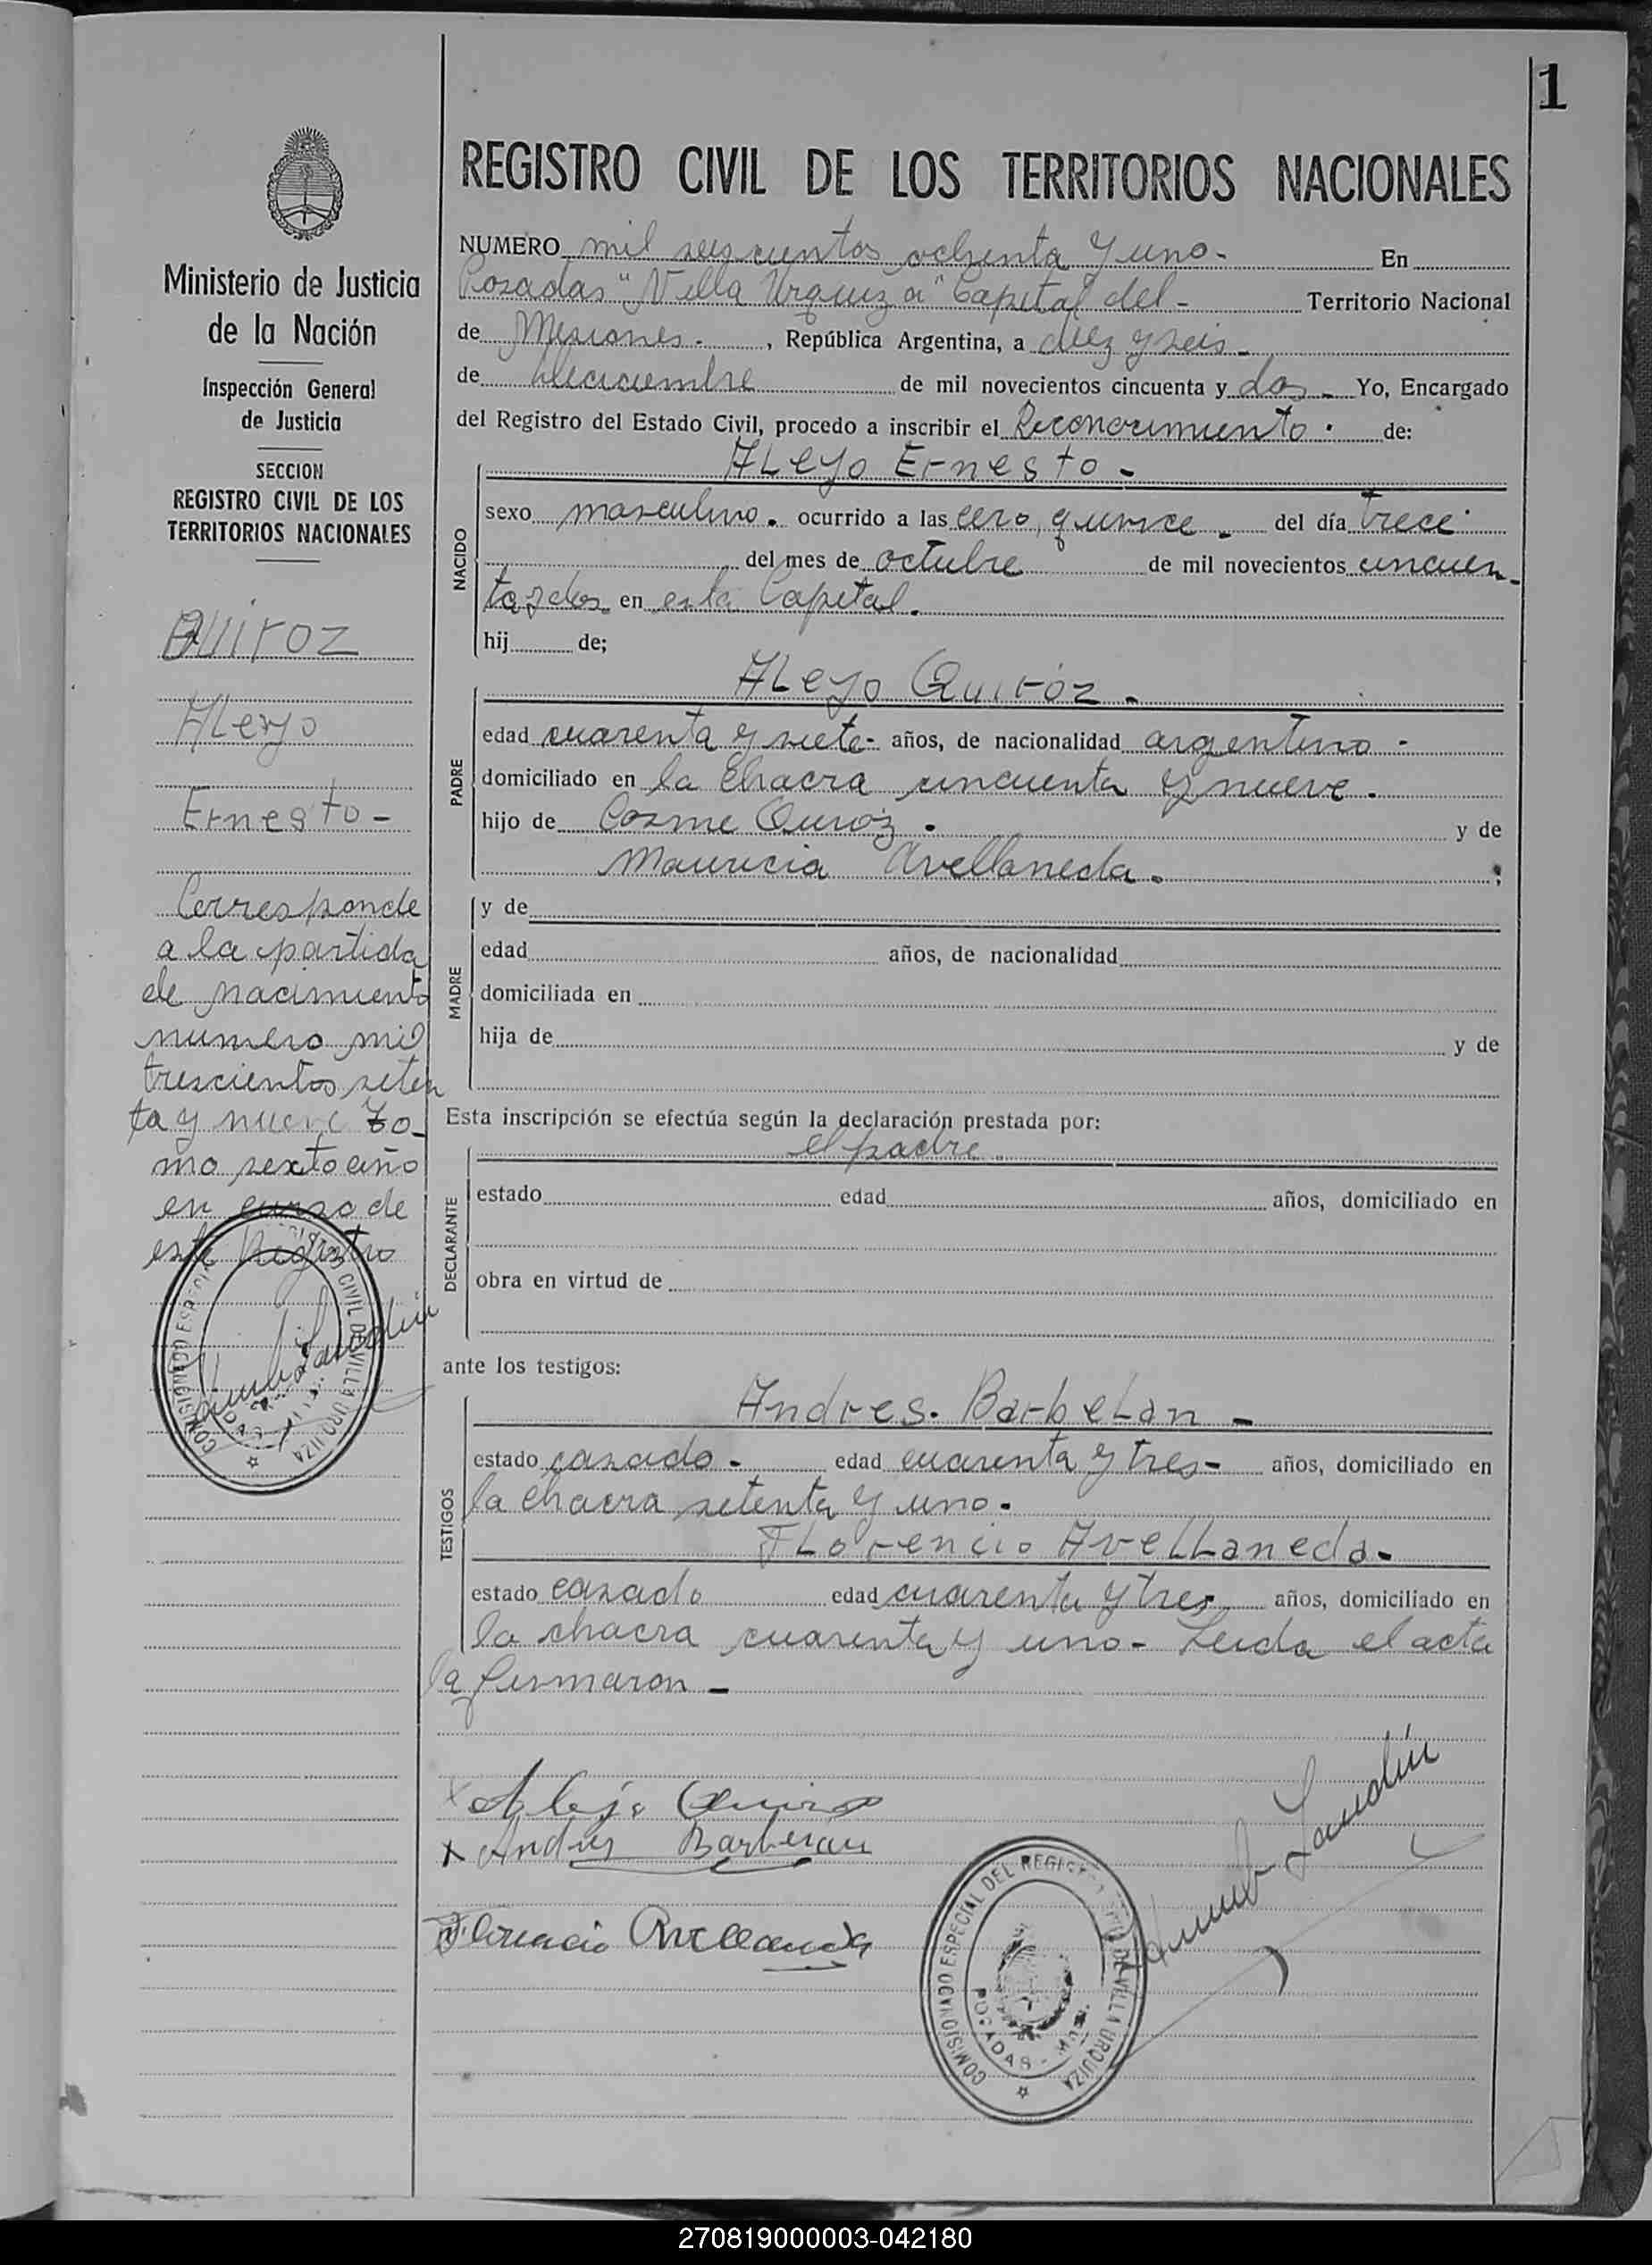 1
REGISTRO CIVIL DE LOS TERRITORIOS NACIONALES
NUMERO mil seiscientos ochenta y uno - En
Posadas "Villa Urquiza" Capital del - Territorio Nacional
de Misiones. , República Argentina, a diez y seis -
de Diciembre de mil novecientos cincuenta y dos - Yo, Encargado
del Registro del Estado Civil, procedo a inscribir el Reconocimiento . de:
ALeJo Ernesto -
NACIDO
sexo masculino. ocurrido a las cero, quince. del día trece
del mes de octubre de mil novecientos cincuen-
ta y dos en esta Capital.
hij de;
ALeJo Quiróz -
PADRE
edad cuarenta y siete- años, de nacionalidad argentino -
domiciliado en la chacra cincuenta y nueve.
hijo de Cosme Quiróz . y de
Mauricia Avellaneda. ;
MADRE
y de
edad años, de nacionalidad
domiciliada en
hija de y de
Esta inscripción se efectúa según la declaración prestada por:
el padre.
DECLARANTE
estado edad años, domiciliado en
obra en virtud de
ante los testigos:
Andres. BarbeLan -
TESTIGOS
estado casado - edad cuarenta y tres- años, domiciliado en
la chacra setenta y uno.
FLorencio AveLLaneda.
estado casado edad cuarenta y tres años, domiciliado en
la chacra cuarenta y uno- Leida el acta
la firmaron -
x Alejo Quiroz
x Andres Barberan
Florencio Avellaneda
Landin
COMISIONADO ESPECIAL DEL REGISTRO CIVIL DE VILLA URQUIZA
POSADAS - Mnes.
Ministerio de Justicia
de la Nación
Inspección General
de Justicia
SECCION
REGISTRO CIVIL DE LOS
TERRITORIOS NACIONALES
QUIroz
ALeJo
Ernesto -
Corresponde
a la partida
de nacimiento
numero mil
trescientos seten
ta y nueve To-
mo sexto año
en curso de
este Registro
Landin
COMISIONADO ESPECIAL CIVIL DE VILLA URQUIZA
270819000003-042180